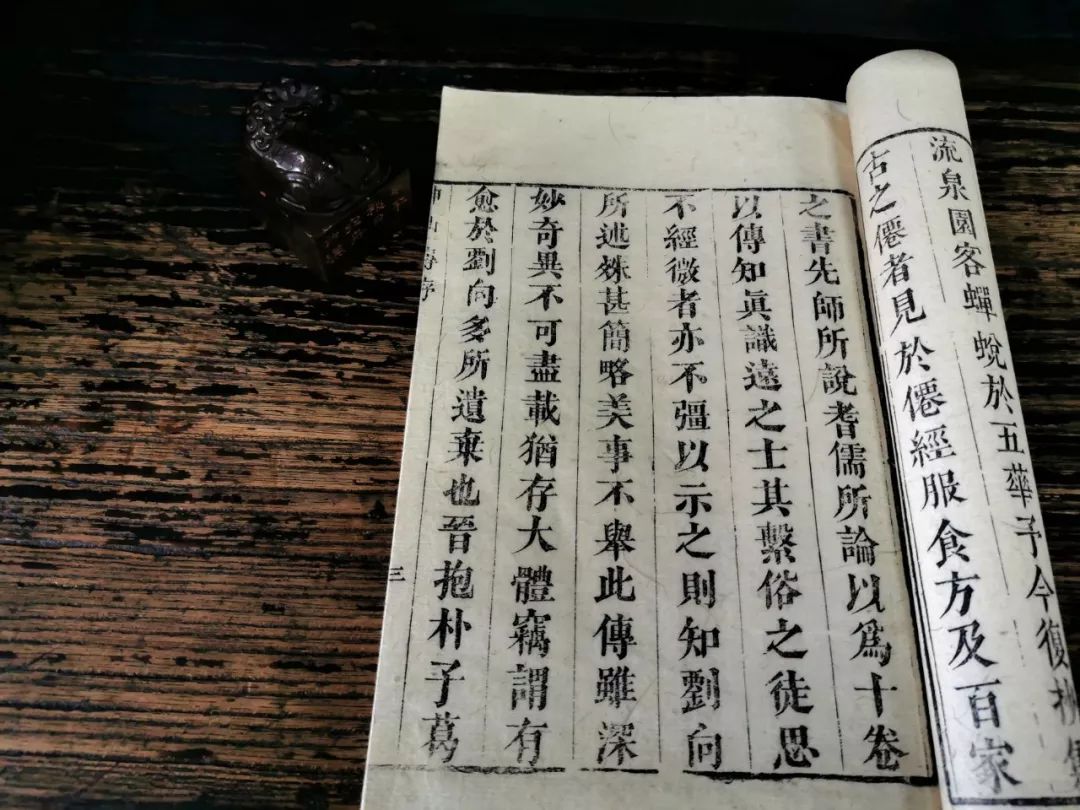 流泉園客蟬蛻於五華予今復抄集
古之僊者見於僊經服食方及百家
之書先師所說耆儒所論以爲十卷
以傳知眞識遠之士其繫俗之徒思
不經微者亦不彊以示之則知劉向
所述殊甚簡略美事不舉此傳雖深
妙奇異不可盡載猶存大體竊謂有
愈於劉向多所遺棄也晉抱朴子葛
序
三